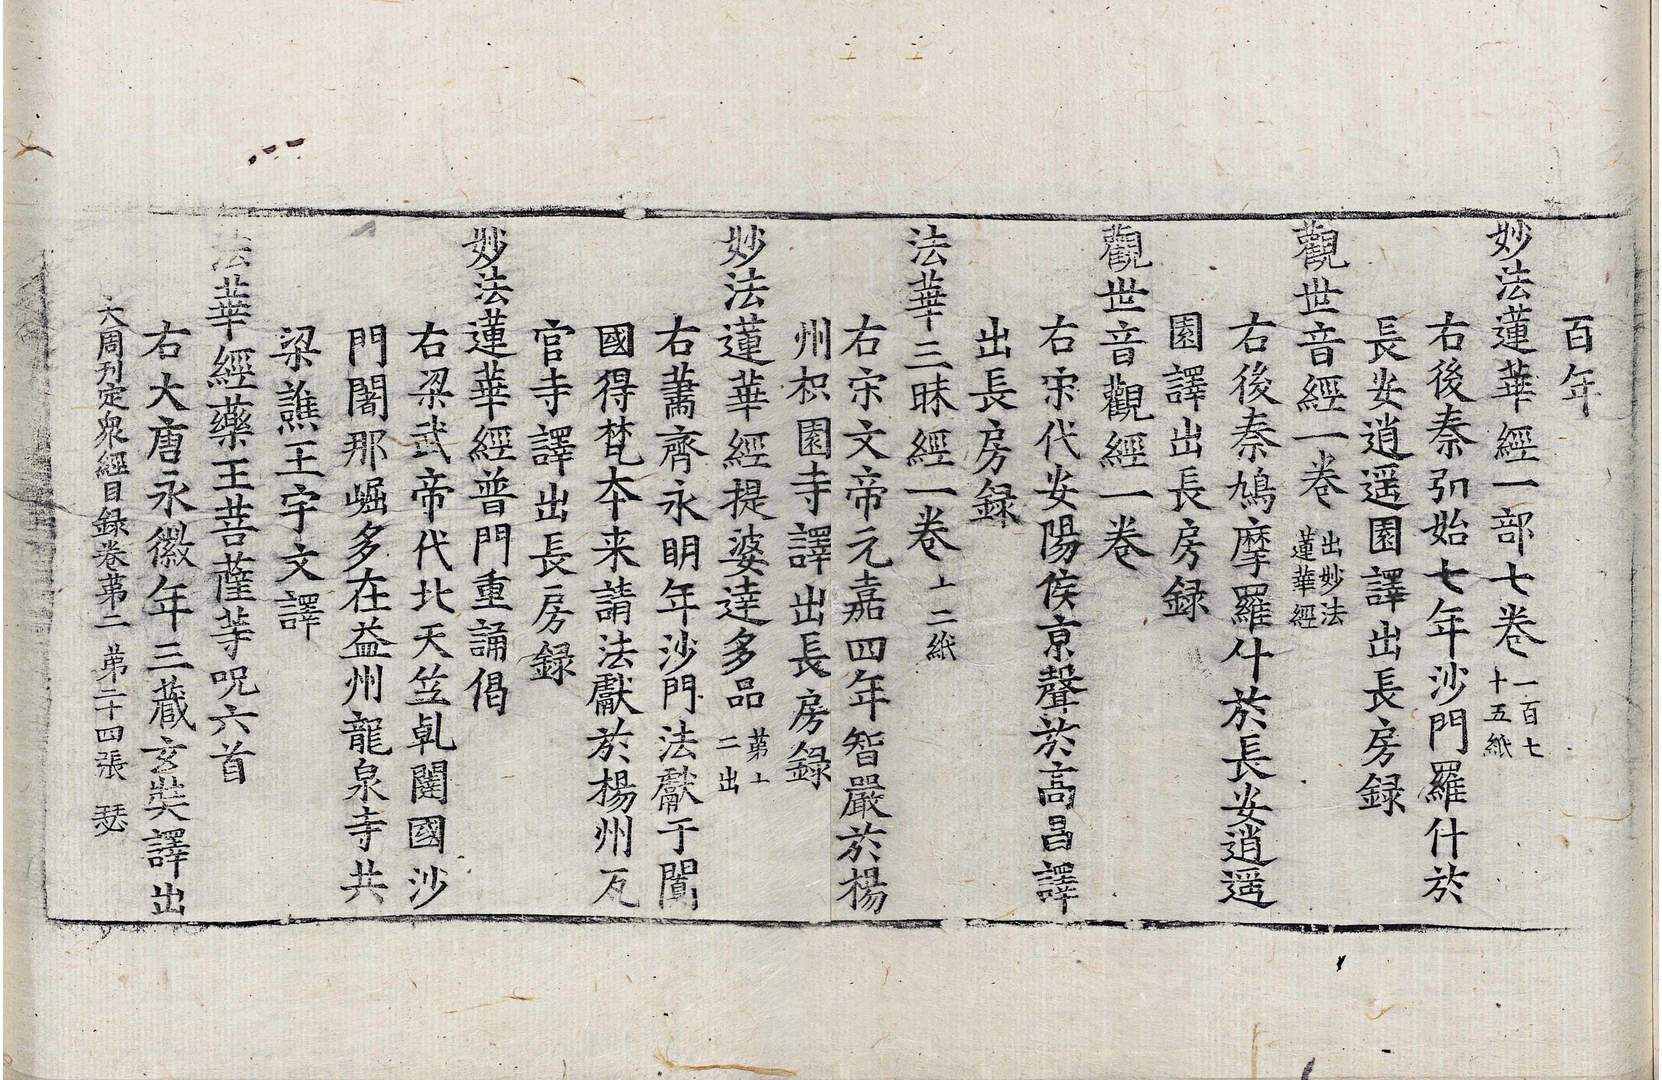 百年
妙法蓮華經一部七卷一百七十五紙
右後秦弘始七年沙門羅什於
長安逍遥園譯出長房録
觀世音經一卷出妙法蓮華經
右後秦鳩摩羅什於長安逍遥
園譯出長房録
觀世音觀經一卷
右宋代安陽侯京聲於高昌譯
出長房録
法華三昧經一卷十二紙
右宋文帝元嘉四年智嚴於楊
州枳園寺譯出長房録
妙法蓮華經提婆達多品第十二出
右蕭齊永明年沙門法獻于闐
國得梵本来請法獻於楊州瓦
官寺譯出長房録
妙法蓮華經普門重誦偈
右梁武帝代北天笠乹闥國沙
門闍那崛多在益州龍泉寺共
梁譙王宇文譯
法華經藥王菩薩等呪六首
右大唐永徽年三藏玄奘譯出
大周刊定衆經目録卷第二 第二十四張 瑟